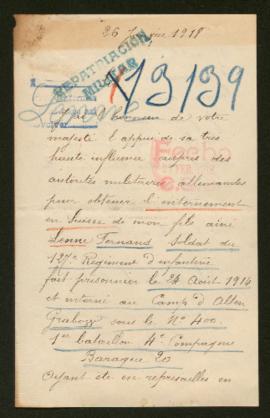 26 1918
REPATRIACIÓN
MILITAR
13139
de votre
majesté l'appui de sa très
haute influence auprès des
autorités militaires allemandes
pour obtenir l'internement
en Suisse de mon fils ainé
Lenne Fernand soldat du
127e Regiment d'infanterie
fait prisonnier le 24 Août 1914
et interné au Camp d'Alten
Grabow sous le No 400
1er bataillon 4e Compagnie
Baraque 20
Ayant été en represailles en